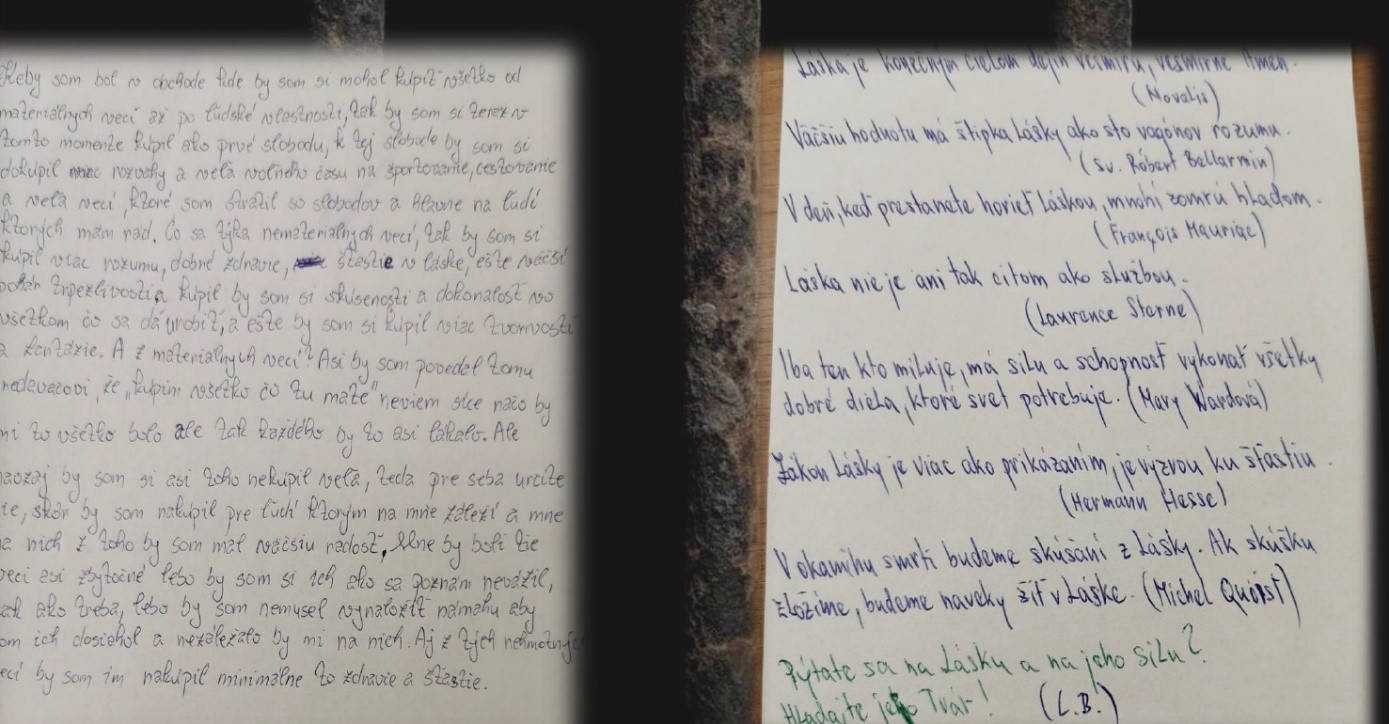 Keby som bol v obchode kde by som si mohol kúpiť všetko od
materiálnych vecí až po ľudské vlastnosti, tak by som si teraz v
tomto momente kúpil ako prvé slobodu, k tej slobode by som si
dokúpil rozvahy a veľa voľného času na športovanie, cestovanie
a veľa vecí, ktoré som stratil so slobodou a hlavne na ľudí
ktorých mám rád. Čo sa týka nemateriálnych vecí, tak by som si
kúpil viac rozumu, dobré zdravie, šťastie v láske, ešte väčší
trpezlivosti a kúpil by som si skúsenosti a dokonalosť vo
všetkom čo sa dá urobiť, a ešte by som si kúpil viac tvorivosti
a fantázie. A z materiálnych vecí? Asi by som povedal tomu
že "kúpim všetko čo tu máte" neviem síce načo by
mi to všetko bolo ale tak každého by to asi lákalo. Ale
naozaj by som si asi toho nekúpil veľa, teda pre seba určite
nie, skôr by som nakúpil pre ľudí ktorým na mne záleží a mne
na nich z toho by som mal väčšiu radosť, Mne by boli tie
veci asi zbytočné lebo by som si ich ako sa poznám nevážil,
tak ako treba, lebo by som nemusel vynaložiť námahu aby
som ich dosiahol a nezáležalo by mi na nich. Aj z tých nehmotných
vecí by som im nakúpil minimálne to zdravie a šťastie.
Láska je konečným cieľom dejín vesmíru, vesmírne Amen.
(Novalis)
Väčšiu hodnotu má štipka Lásky ako sto vagónov rozumu.
(sv. Róbert Bellarmín)
V deň, keď prestanete horieť Láskou, mnohí zomrú hladom.
(François Mauriac)
Láska nie je ani tak citom ako službou.
(Laurence Sterne)
Iba ten kto miluje, má silu a schopnosť vykonať všetky
dobré diela, ktoré svet potrebuje. (Mary Wardová)
Zákon Lásky je viac ako prikázaním, je výzvou ku šťastiu.
(Hermann Hesse)
V okamihu smrti budeme skúšaní z Lásky. Ak skúšku
zložíme, budeme naveky žiť v Láske. (Michel Quoist)
Pýtate sa na Lásku a na jeho silu?
Hľadajte jeho Tvár! (L.B.)